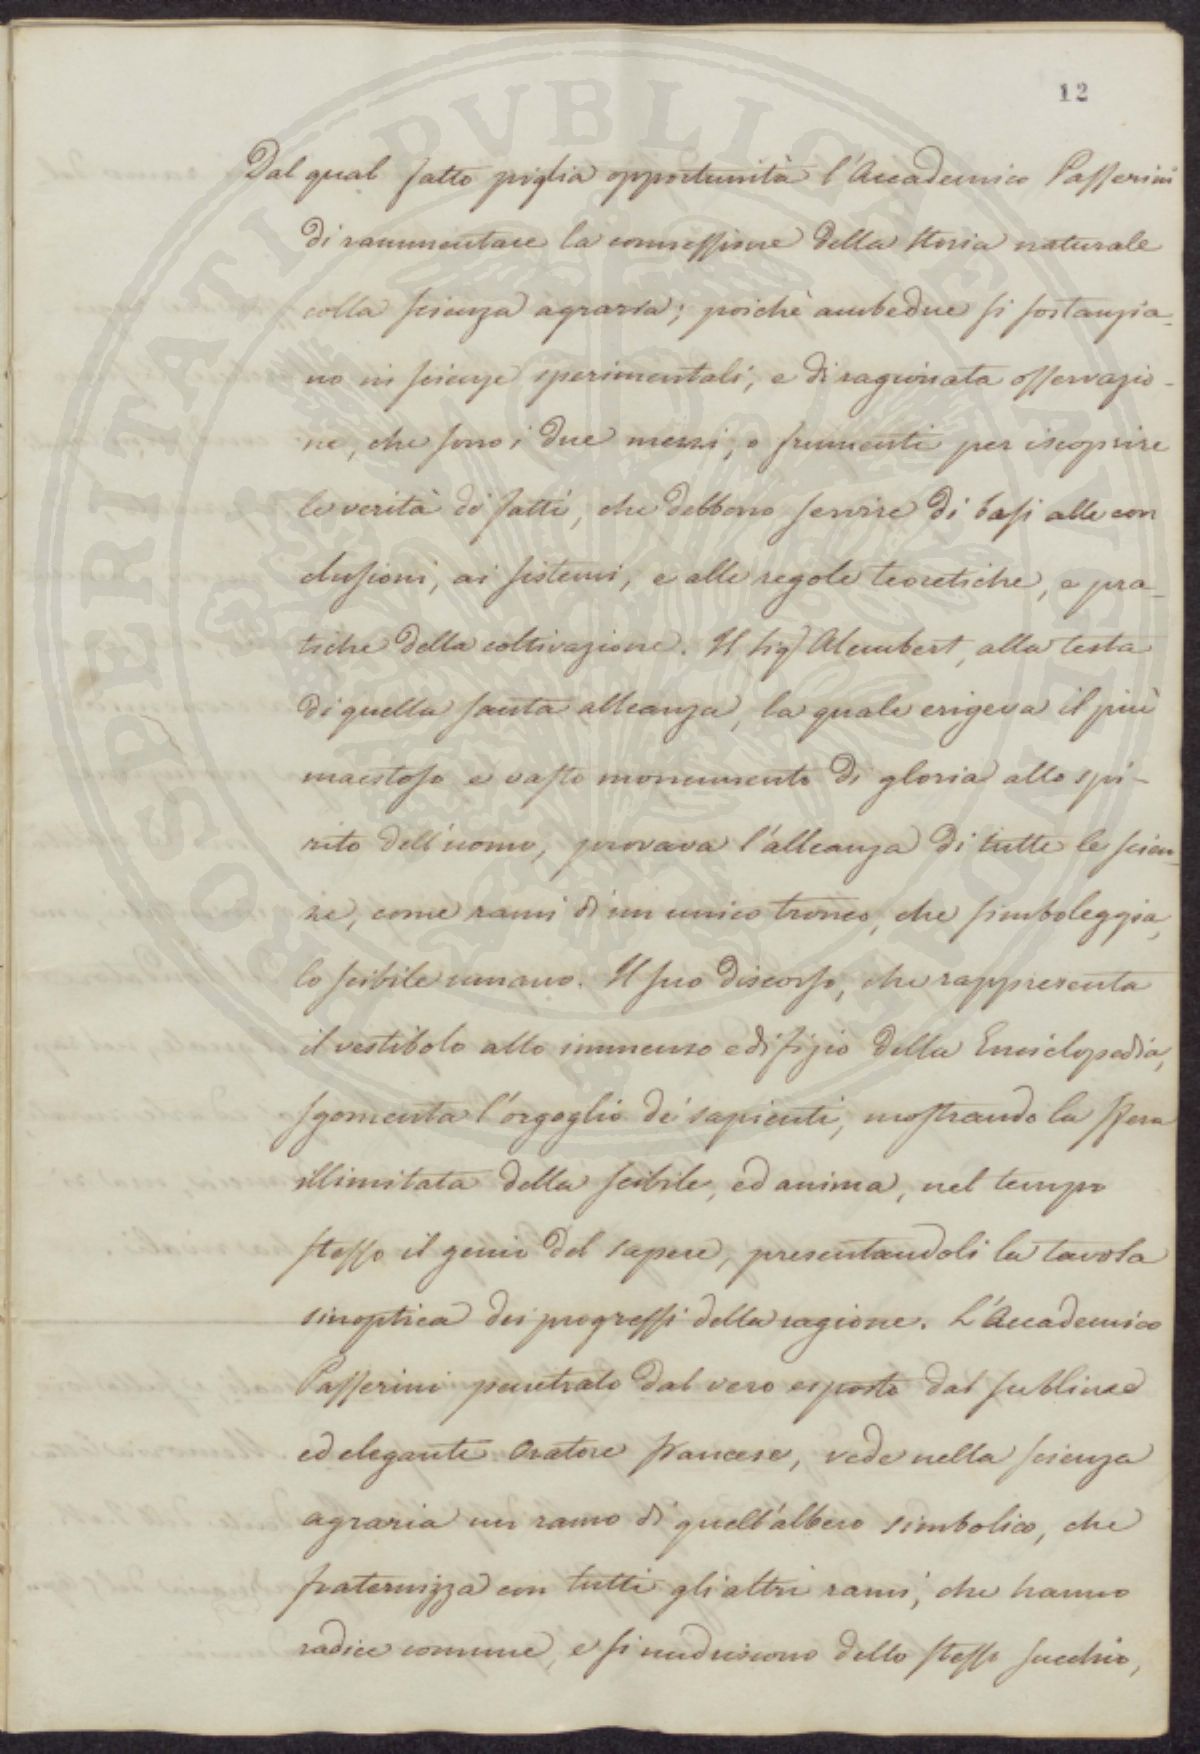 12
Dal qual fatto piglia opportunità l'Accademico Passerini
di rammentare la connessione della storia naturale
colla scienza agraria; poichè ambedue si sostanzia-
no in scienze sperimentali, e di ragionata osservazio-
ne, che sono i due mezzi, o strumenti per iscoprire
le verità di fatti, che debbono servire di basi alle con
clusioni, ai sistemi, e alle regole teoretiche, e pra-
tiche della coltivazione. Il Sig.r Alembert, alla testa
di quella santa alleanza, la quale erigeva il più
maestoso e vasto monumento di gloria allo spi-
rito dell'uomo, provava l'alleanza di tutte le scien-
ze, come rami di un unico tronco, che simboleggia,
lo scibile umano. Il suo discorso, che rappresenta
il vestibolo allo immenso edifizio della Enciclopedia,
sgomenta l'orgoglio de' sapienti, mostrando la sfera
illimitata dello scibile, ed anima, nel tempo
stesso il genio del sapere, presentandoli la tavola
sinoptica dei progressi della ragione. L'Accademico
Passerini penetrato dal vero esposto dal sublime
ed elegante Oratore francese, vede nella scienza
agraria un ramo di quell'albero simbolico, che
fraternizza con tutti gli altri rami, che hanno
radice comune, e si nudriscono dello stesso succhio,
PROSPERITATI PVBLICAE AVGENDAE